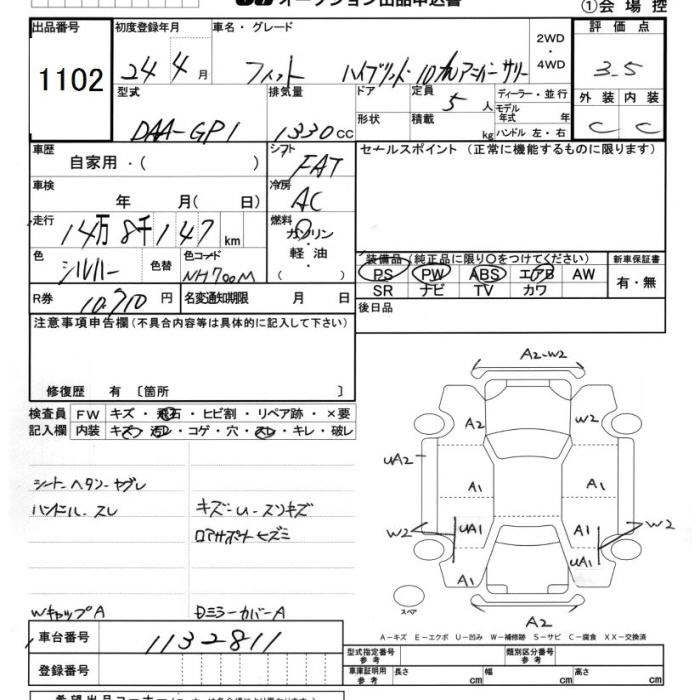 オークション出品申込書
①会 場 控
出品番号
1102
初度登録年月
24年 4月
車名・グレード
フィット ハイブリット・10thアニバーサリー
2WD
・
4WD
評 価 点
3.5
型式
DAA-GP1
排気量
1330cc
ドア
形状
定員
5人
積載
kg
ディーラー・並行
モデル年式 年
ハンドル 左・右
外 装
C
内 装
C
車歴
自家用・( )
シフト
FAT
セールスポイント (正常に機能するものに限ります)
車検
年 月( 日)
冷房
AC
走行
14万8千147km
燃料
ガソリン
・
軽 油
( )
色
シルバー
色替
色コード
NH700M
装備品 (純正品に限り○をつけてください)
PS PW ABS エアB AW
SR ナビ TV カワ
新車保証書
有・無
R券
10,710円
名変通知期限 月 日
後日品
注意事項申告欄(不具合内容等は具体的に記入して下さい)
修復歴 有 〔箇所 〕
検査員
記入欄
FW キズ・飛石・ヒビ割・リペア跡・×要
内装 キズ・汚レ・コゲ・穴・スレ・キレ・破レ
シートヘタン・ヤブレ
ハンドル・スレ
キズ-U-スリキズ
ロアサポートヒズミ
WキャップA
DミラーカバーA
A2-W2
A2
W2
UA2
A1
A1
W2
UA1
UA1
W2
UA1
A1
A1
A2
スペア
A-キズ E-エクボ U-凹み W-補修跡 S-サビ C-腐食 XX-交換済
車台番号
1132811
登録番号
型式指定番号
参 考
類別区分番号
参 考
車庫証明用
参 考
長さ cm
幅 cm
高さ cm
希望出品コーナー